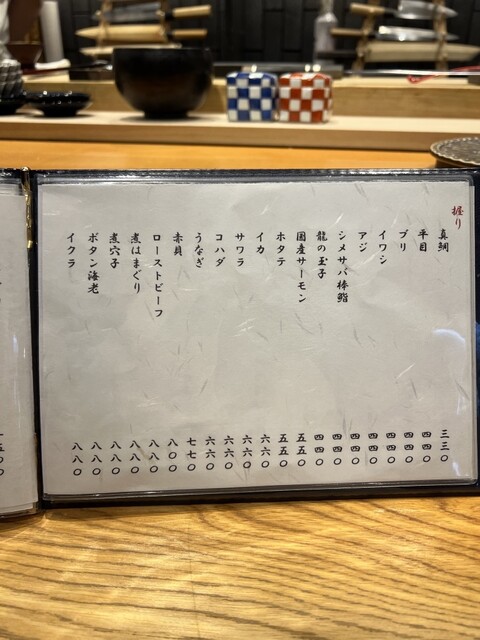 握り
真鯛 三三〇
平目 四四〇
ブリ 四四〇
イワシ 四四〇
アジ 四四〇
シメサバ棒鮨 四四〇
龍の玉子 四四〇
国産サーモン 五五〇
ホタテ 五五〇
イカ 六六〇
サワラ 六六〇
コハダ 六六〇
うなぎ 六六〇
赤貝 七七〇
ローストビーフ 八八〇
煮はまぐり 八八〇
煮穴子 八八〇
ボタン海老 八八〇
イクラ 八八〇